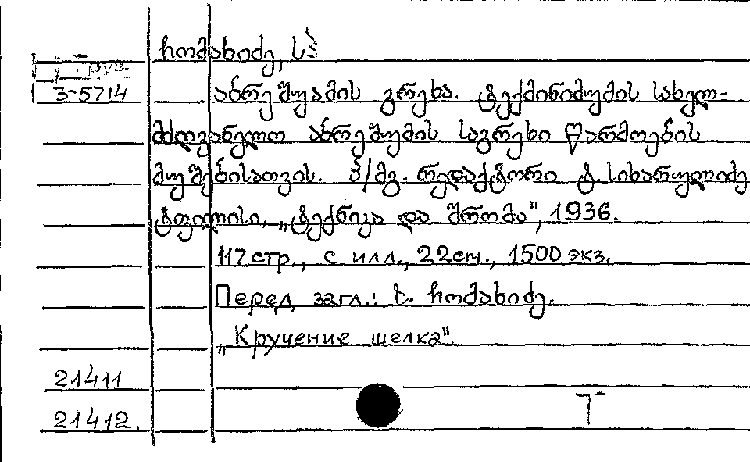 ჩომახიძე, ს.
3-5714
აბრეშუმის გრეხა. ტექმინიმუმის სახელ-
მძღვანელო აბრეშუმის საგრეხი წარმოების
მუშებისათვის. პ/მგ. რედაქტორი ტ. სიხარულიძე
ტფილისი, „ტექნიკა და შრომა", 1936.
117 стр., с илл., 22см., 1500 экз.
Перед загл.: ს. ჩომახიძე.
„Кручение шелка".
21411
21412.
T